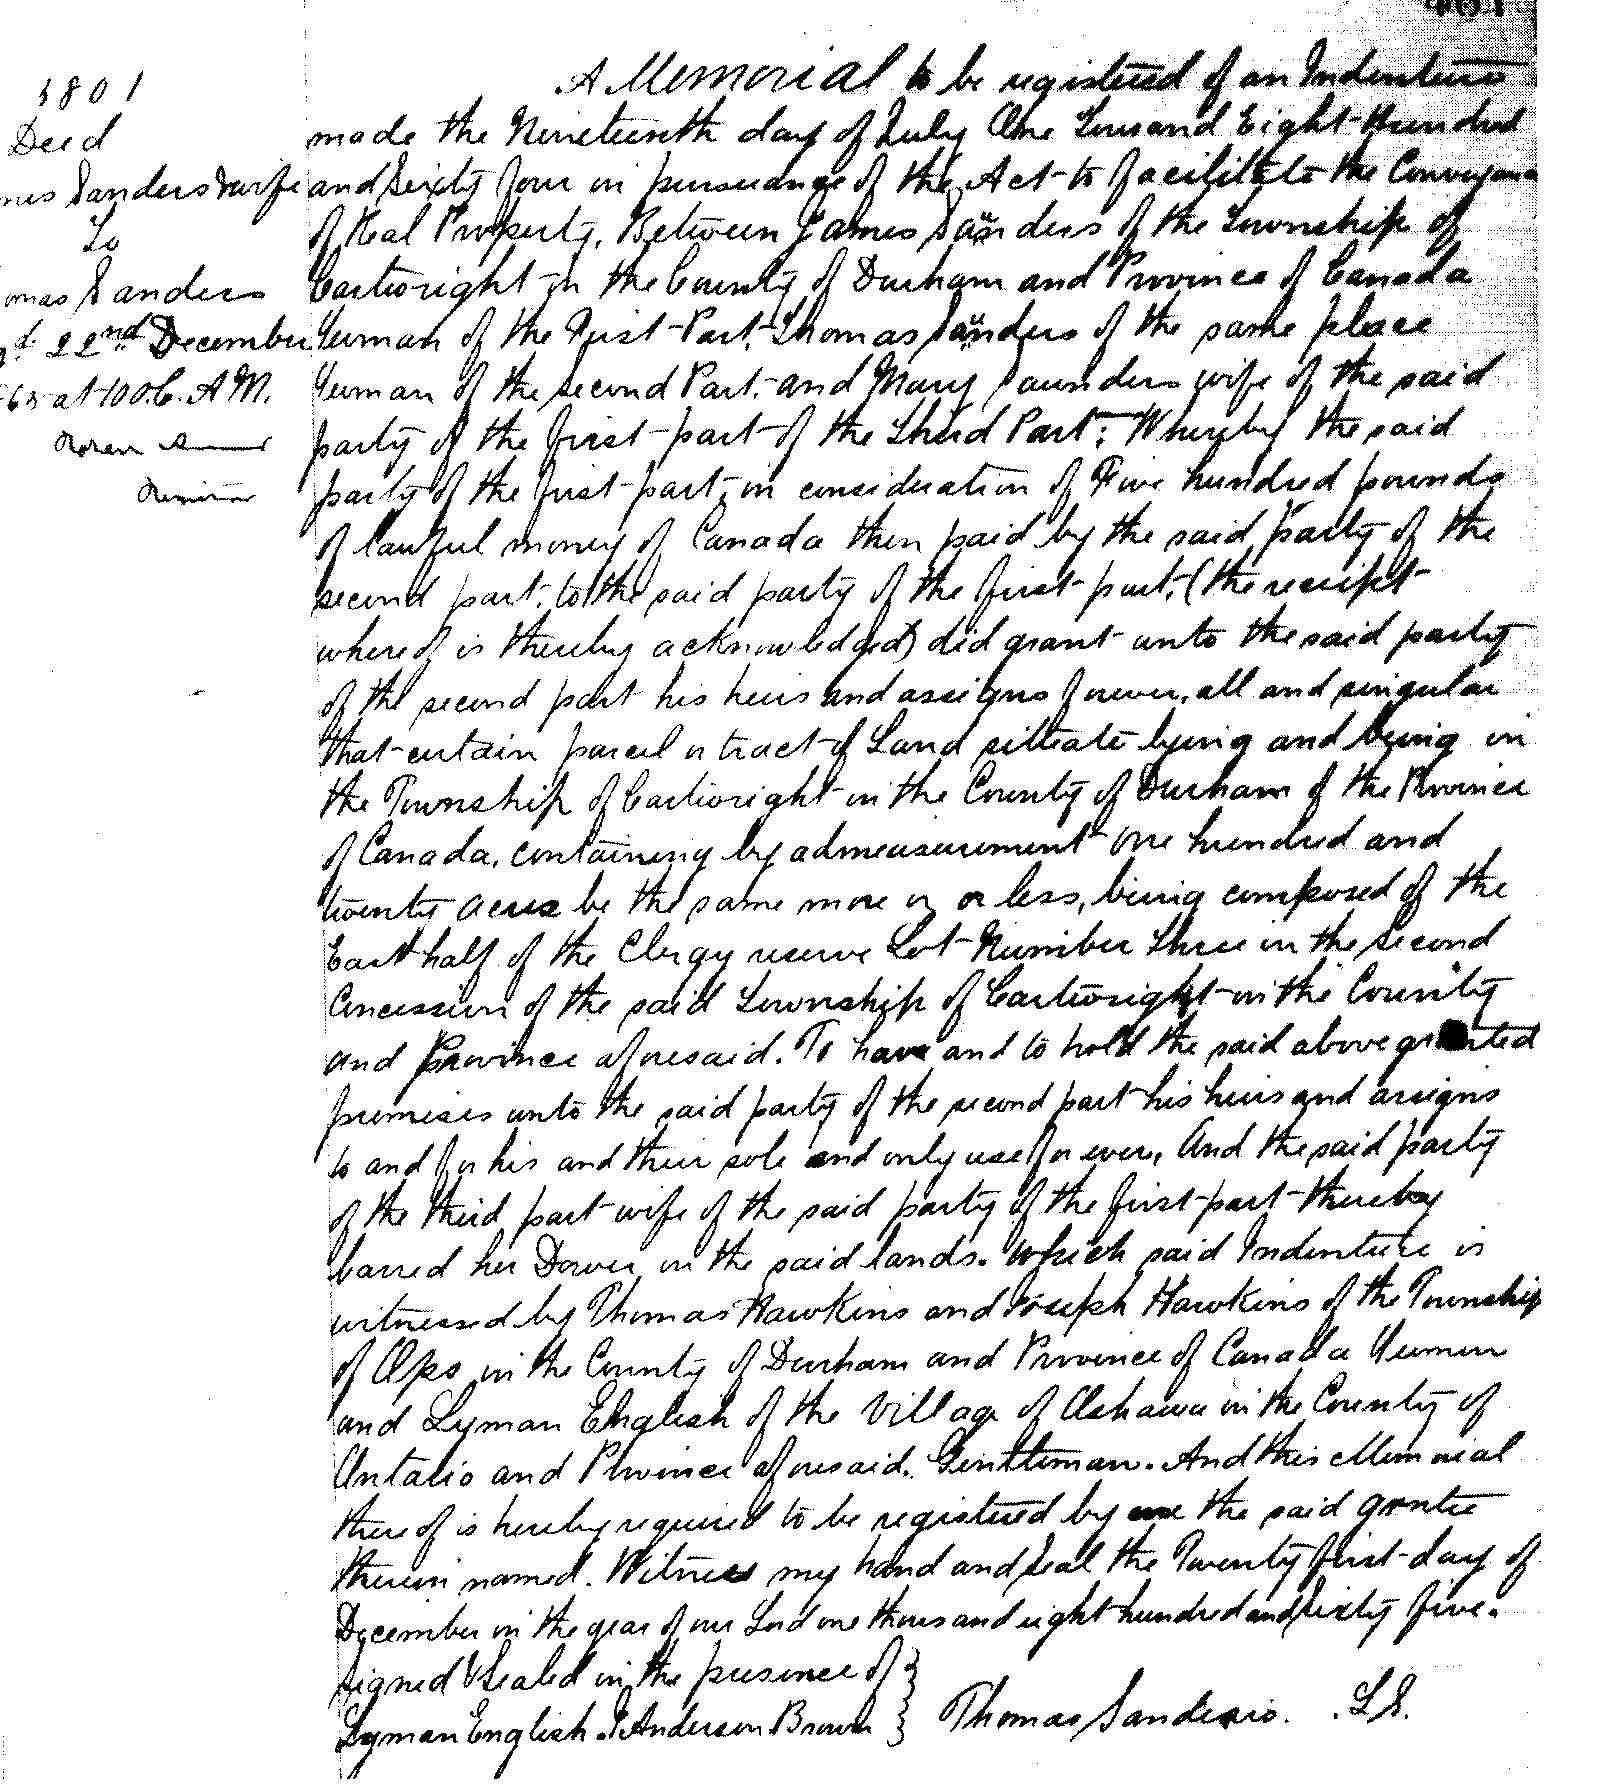 1801
Deed
Sanders & wife
To
Sanders
22nd December
at 10 O.C. A.M.
A Memorial to be registered of an Indenture
made the Nineteenth day of July One Thousand Eight Hundred
and Sixty four in pursuance of the Act to facilitate the Conveyance
of Real Property, Between James Sanders of the Township of
Cartwright in the County of Durham and Province of Canada
Yeoman of the First Part, Thomas Sanders of the same place
Yeoman of the second Part, and Mary Saunders wife of the said
party of the first part of the Third Part; Whereby the said
party of the first part, in consideration of Five hundred pounds
of lawful money of Canada then paid by the said party of the
second part, to the said party of the first part, (the receipt
whereof is thereby acknowledged) did grant unto the said party
of the second part his heirs and assigns forever, all and singular
that certain parcel or tract of Land situate lying and being in
the Township of Cartwright in the County of Durham of the Province
of Canada, containing by admeasurement One hundred and
twenty acres be the same more or or less, being composed of the
East half of the Clergy reserve Lot Number Three in the second
Concession of the said Township of Cartwright in the County
and Province aforesaid. To have and to hold the said above granted
premises unto the said party of the second part his heirs and assigns
to and for his and their sole and only use for ever, And the said party
of the third part wife of the said party of the first part thereby
barred her Dower in the said lands. Which said Indenture is
witnessed by Thomas Hawkins and Joseph Hawkins of the Township
of Ops in the County of Durham and Province of Canada Yeomen
and Lyman English of the Village of Oshawa in the County of
Ontario and Province aforesaid. Gentleman. And this Memorial
thereof is hereby required to be registered by me the said grantee
therein named. Witness my hand and seal the Twenty first day of
December in the year of our Lord one thousand eight hundred and sixty five.
Signed & Sealed in the presence of }
Lyman English. Anderson Brown } Thomas Sanders. L.S.